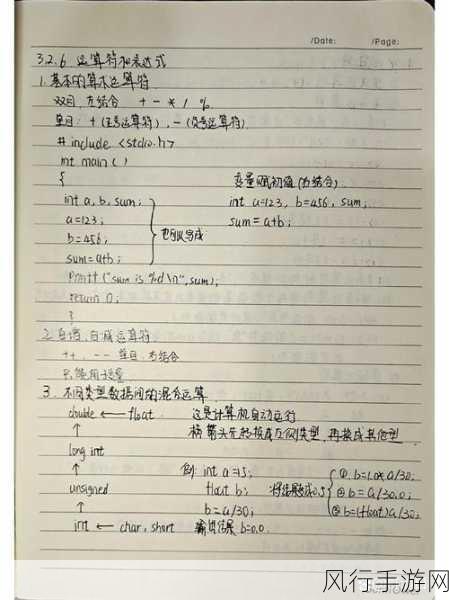 /Date: /Page:
3.2.6 运算符和表达式
1.基本的算术运算符
双目,左结合 + - * / %
单目: +(正号运算符), -(负号运算符)
# include <stdio.h>
int main ( )
{ 变量赋初值(右结合)
int a, b, sum; int a=123, b=456, sum;
a=123; sum = a+b;
b=456; 也可以写成
sum=a+b;
printf ("sum is %d \n", sum);
return 0;
}
2.自增,自减运算符
++, -- 单目,右结合
只能用于变量
3.不同类型数据间的混合运算
double ← float 这是计算机自动运行
↑ 横箭头先转换成左侧类型,再换成其他型
long int
↑ 例: int a=15; ① b=1.0*a/30;
unsigned float b; 将结果成0.5 ② b=a/30.0;
↑ b=a/30; ③ b=(float)a/30;
int ← char, short 输出结果 b=0.0
风行手游网